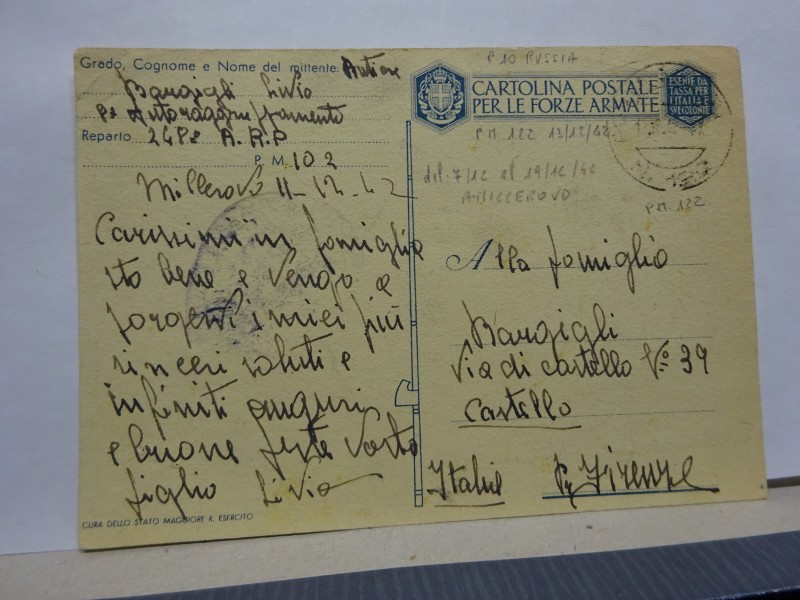 Grado, Cognome e Nome del mittente: Autiere
Bargigli Livio
Reparto 248º A.R.P
P. M. 102
Millerovo 11-12-42
Carissimi in famiglia
sto bene e vengo a
porgervi i miei più
sinceri saluti e
infiniti auguri
e buone feste Vostro
figlio Livio
CURA DELLO STATO MAGGIORE R. ESERCITO
P 10 RUSSIA
CARTOLINA POSTALE
PER LE FORZE ARMATE
ESENTE DA
TASSA PER
L'ITALIA E
SVE COLONIE
PM. 122 13/12/42
del 7/12 al 19/12/42
A MILLEROVO
PM. 122
Alla famiglia
Bargigli
Via di castello Nº 39
Castello
Italia Firenze